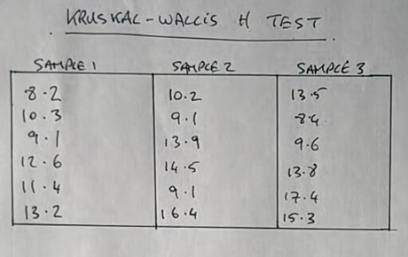 KRUSKAL-WALLIS H TEST
SAMPLE 1 SAMPLE 2 SAMPLE 3
8.2 10.2 13.5
10.3 9.1 8.4
9.1 13.9 9.6
12.6 14.5 13.8
11.4 9.1 17.4
13.2 16.4 15.3